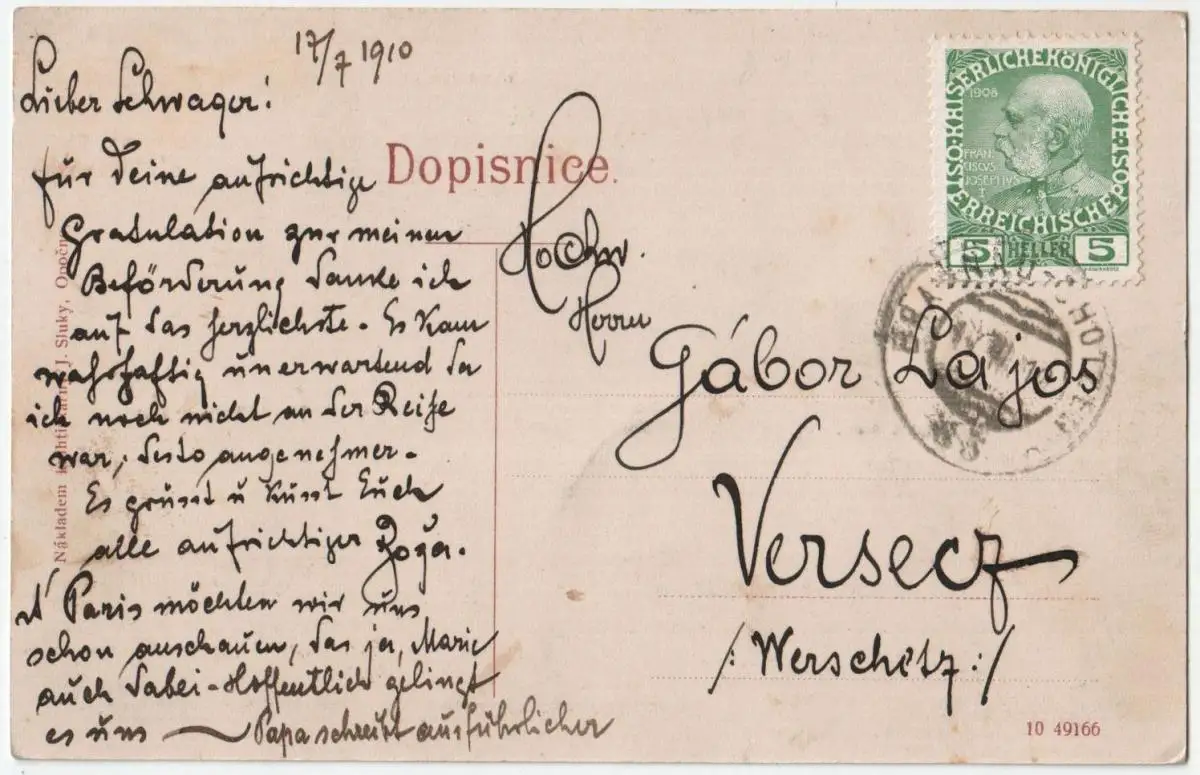 17/7 1910
Lieber Schwager!
für Deine aufrichtige
Gratulation zur meiner
Beförderung danke ich
auf das herzlichste. Es kam
wahrhaftig unerwartend da
ich noch nicht an der Reihe
war, desto angenehmer.
Es grüsst u küsst Euch
alle aufrichtiger
Paris möchten wir uns
schon anschauen, das ja, Marie
auch dabei - Hoffentlich gelingt
es uns — Papa schreibt ausführlicher
Dopisnice.
Hochw.
Herrn
Gábor Lajos
Versecz
/: Werschetz :/
Nákladem J. Sluky, Opočno
KAISERLICHEKÖNIGLICHE
ÖSTERREICHISCHEPOST
1908
FRAN
CISCVS
IOSEPHVS
I
5 HELLER 5
10 49166